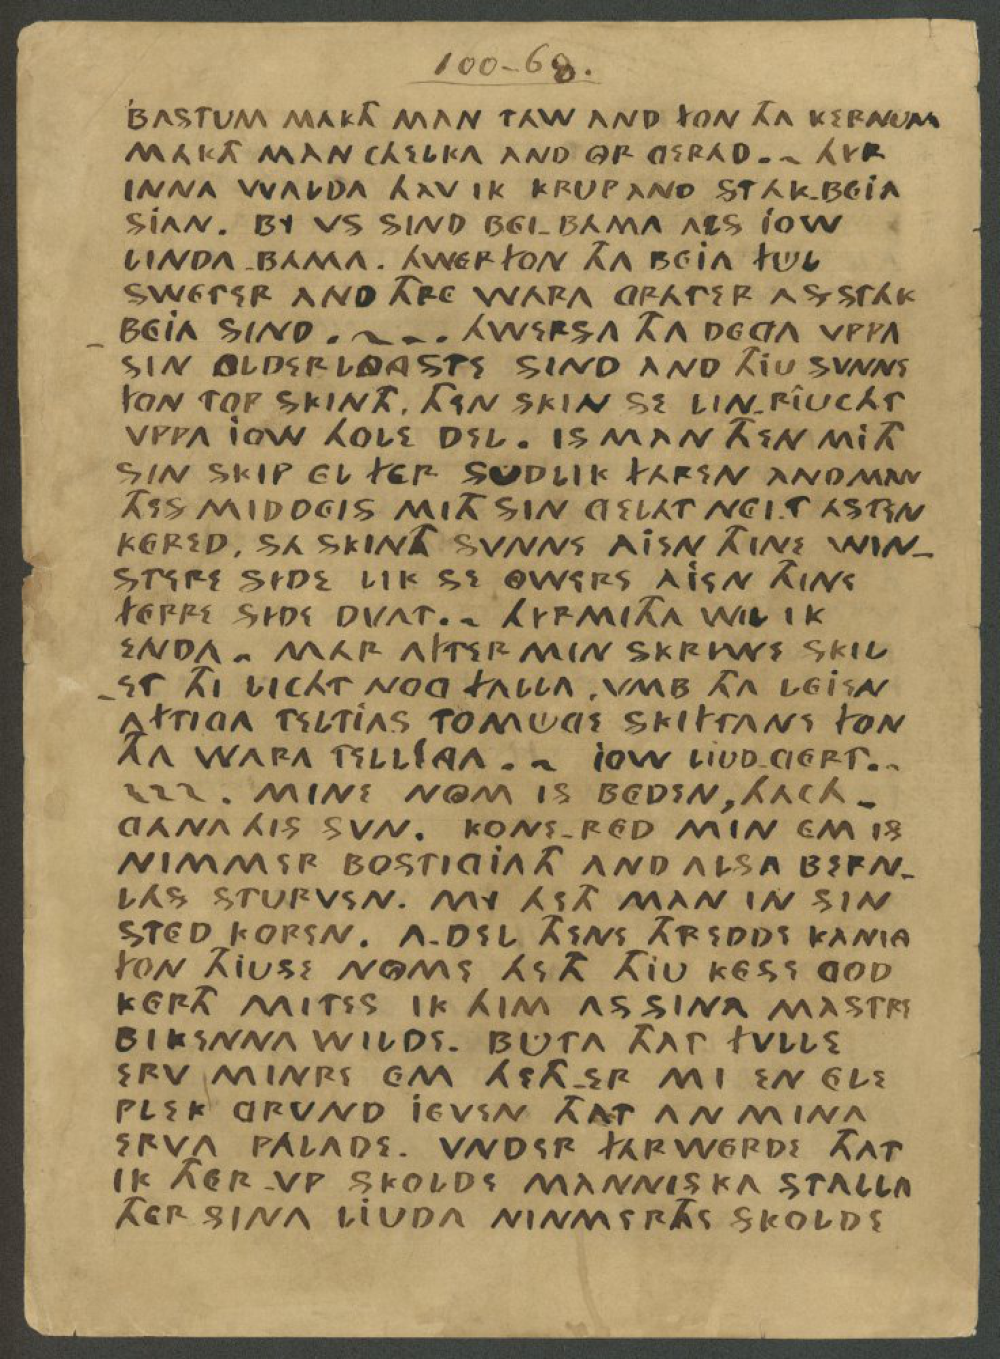 100-68.
BASTUM MAKATH MAN TAW AND FON THA KERNUM
MAKATH MAN CHELKA AND OR GERAD.~ HYR
INNA WALDA HAV IK KRUP AND STAK-BEIA
SIAN. BY VS SIND BEL-BAMA ALS IOW
LINDA-BAMA. HWERFON THA BEIA FUL
SWETER AND THRE WARA GRATER AS STAK
BEIA SIND. ~~. HWERSA THA DEGA VPPA
SIN OLDERLOASTE SIND AND THIU SVNNE
FON TOP SKINTH, THEN SKIN SE LIN-RIUCHT
VPPA IOW HOLE DEL. IS MAN THEN MITH
SIN SKIP EL FER SUDLIK FAREN AND MAN
THES MIDDEIS MITH SIN GELAT NEI.T ASTEN
KERED, SA SKINTH SVNNE AJEN THINE WIN-
STERE SIDE LIK SE OWERS AJEN THINE
FERRE SIDE DVAT.~ HYRMITHA WIL IK
ENDA ~ MAR AFTER MIN SKRIWE SKIL
-ET THI LICHT NOG FALLA, VMB THA LEIEN
AFTIGA TELTIAS TO MUGE SKIFTANE FON
THA WARA TELLINGA.~ IOW LIUDGERT.~
~~~. MINE NOM IS BEDEN, HACH-
GANA HIS SVN. KONE-RED MIN EM IS
NIMMER BOSTIGIATH AND ALSA BERN-
LAS STURVEN. MY HETH MAN IN SIN
STED KOREN. A-DEL THENE THREDDE KANING
FON THIUSE NOME HETH THIU KESE GOD
KERTH MITES IK HIM AS SINA MASTRE
BIKENNA WILDE. BUTA THAT FVLLE
ERV MINRE EM HETH-ER MI EN ELE
PLEK GRVND IEVEN THAT AN MINA
ERVA PALADE. VNDER FARWERDE THAT
IK THER-VP SKOLDE MANNISKA STALLA
THER SINA LIUDA NIMMERTHE SKOLDE